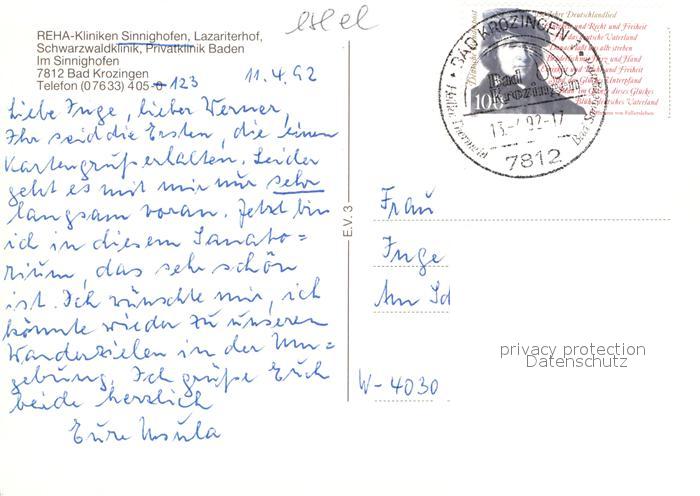 REHA-Kliniken Sinnighofen, Lazariterhof,
Schwarzwaldklinik, Privatklinik Baden
Im Sinnighofen
7812 Bad Krozingen
Telefon (07633) 405-0 123
11.4.92
Liebe Inge, lieber Werner,
Ihr seid die Ersten, die einen
Kartengruß erhalten. Leider
geht es mit mir nur sehr
langsam voran. Jetzt bin
ich in diesem Sanato=
rium, das sehr schön
ist. Ich wünschte mir, ich
könnte wieder zu unseren
Wanderzielen in der Um=
gebung. Ich grüße Euch
beide herzlich
Eure Ursula
E.V. 3
100
BAD KROZINGEN
Bad
Krozingen
13.-4.92-17
7812
Deutschlandlied
und Recht und Freiheit
das deutsche Vaterland
Danach laßt uns alle streben
Brüderlich mit Herz und Hand
Einigkeit und Recht und Freiheit
Sind des Glückes Unterpfand
Blüh im Glanze dieses Glückes
Blühe deutsches Vaterland
Hoffmann von Fallersleben
Frau
Inge
Am Sd
W-4030
privacy protection
Datenschutz